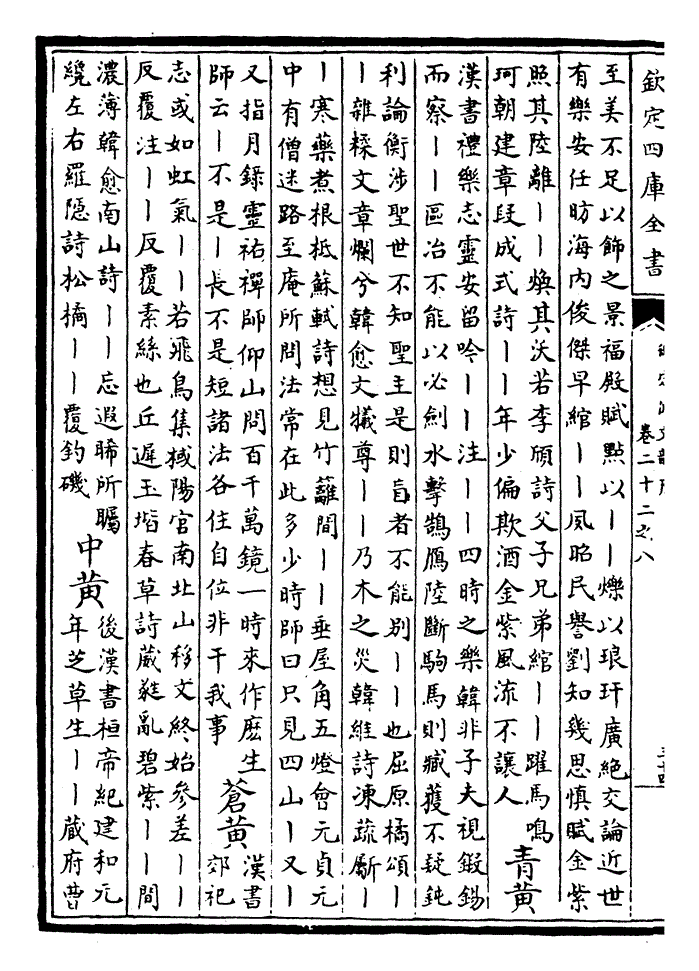 欽定四庫全書
卷二十二之八
至美不足以飾之景福殿賦點以||爍以琅玕廣絶交論近世
有樂安任昉海内俊傑早綰||夙昭民譽劉知幾思慎賦金紫
照其陸離||煥其沃若李頎詩父子兄弟綰||躍馬鳴
珂朝建章段成式詩||年少偏欺酒金紫風流不讓人
青黄
漢書禮樂志靈安留吟||注||四時之樂韓非子夫視鍛錫
而察||區冶不能以必劍水擊鵠鴈陸斷駒馬則臧獲不疑鈍
利論衡涉聖世不知聖主是則盲者不能别||也屈原橘頌|
|雜糅文章爛兮韓愈文犧尊||乃木之災韓維詩凍蔬斸|
|寒藥煮根柢蘇軾詩想見竹籬間||垂屋角五燈會元貞元
中有僧迷路至庵所問法常在此多少時師曰只見四山|又|
又指月錄靈祐禪師仰山問百千萬鏡一時來作麽生
師云|不是|長不是短諸法各住自位非干我事
蒼黄
漢書
郊祀
志或如虹氣||若飛鳥集棫陽宫南北山移文終始參差||
反覆注||反覆素絲也丘遲玉堦春草詩葳蕤亂碧紫||間
濃薄韓愈南山詩||忘遐睎所矚
繞左右羅隠詩松橘||覆釣磯
中黄
後漢書桓帝紀建和元
年芝草生||藏府曹